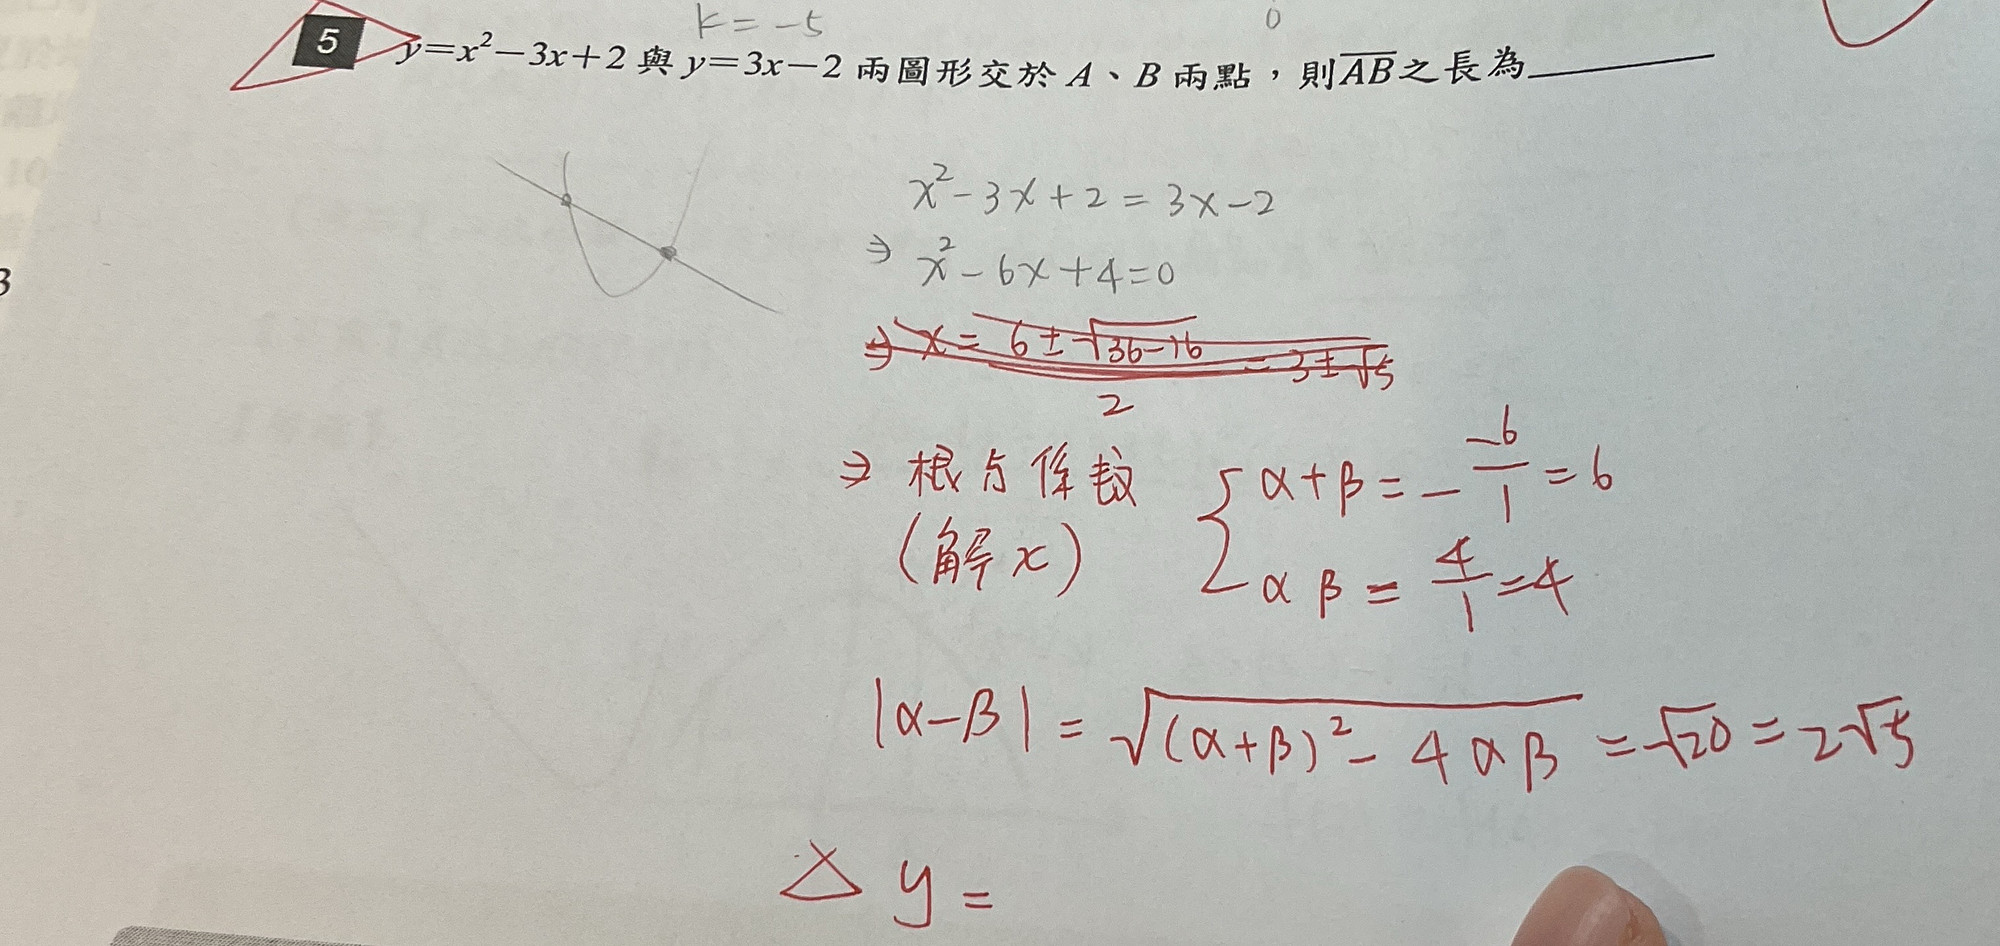 k = -5
0
5 y=x²-3x+2 與 y=3x-2 兩圖形交於 A、B 兩點,則 \overline{AB} 之長為______
x²-3x+2=3x-2
⇒ x²-6x+4=0
⇒ x = \frac{6±√(36-16)}{2} = 3±√5
⇒ 根与係数 { α+β = -\frac{-6}{1} = 6
(解x) αβ = \frac{4}{1} = 4
|α-β| = √((α+β)²-4αβ) = √20 = 2√5
△y =
3